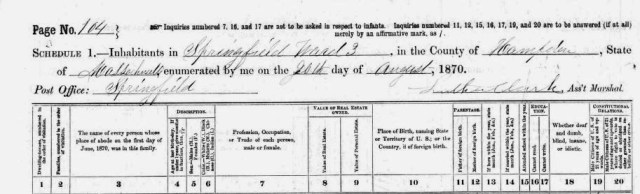 Page No. 104
Inquiries numbered 7, 16, and 17 are not to be asked in respect to infants. Inquiries numbered 11, 12, 15, 16, 17, 19, and 20 are to be answered (if at all)
merely by an affirmative mark, as /.
SCHEDULE 1.—Inhabitants in Springfield Ward 3, in the County of Hampden, State
of enumerated by me on the 20th day of August, 1870.
Post Office: Springfield
Clark, Ass't Marshal.
DESCRIPTION.
VALUE OF REAL ESTATE OWNED.
PARENTAGE.
EDUCATION.
CONSTITUTIONAL RELATIONS.
The name of every person whose place of abode on the first day of June, 1870, was in this family.
Profession, Occupation, or Trade of each person, male or female.
Value of Real Estate.
Value of Personal Estate.
Place of Birth, naming State or Territory of U. S.; or the Country, if of foreign birth.
Father of foreign birth.
Mother of foreign birth.
Attended school within the year.
Cannot read.
Cannot write.
Whether deaf and dumb, blind, insane, or idiotic.
1 2 3 4 5 6 7 8 9 10 11 12 13 14 15 16 17 18 19 20